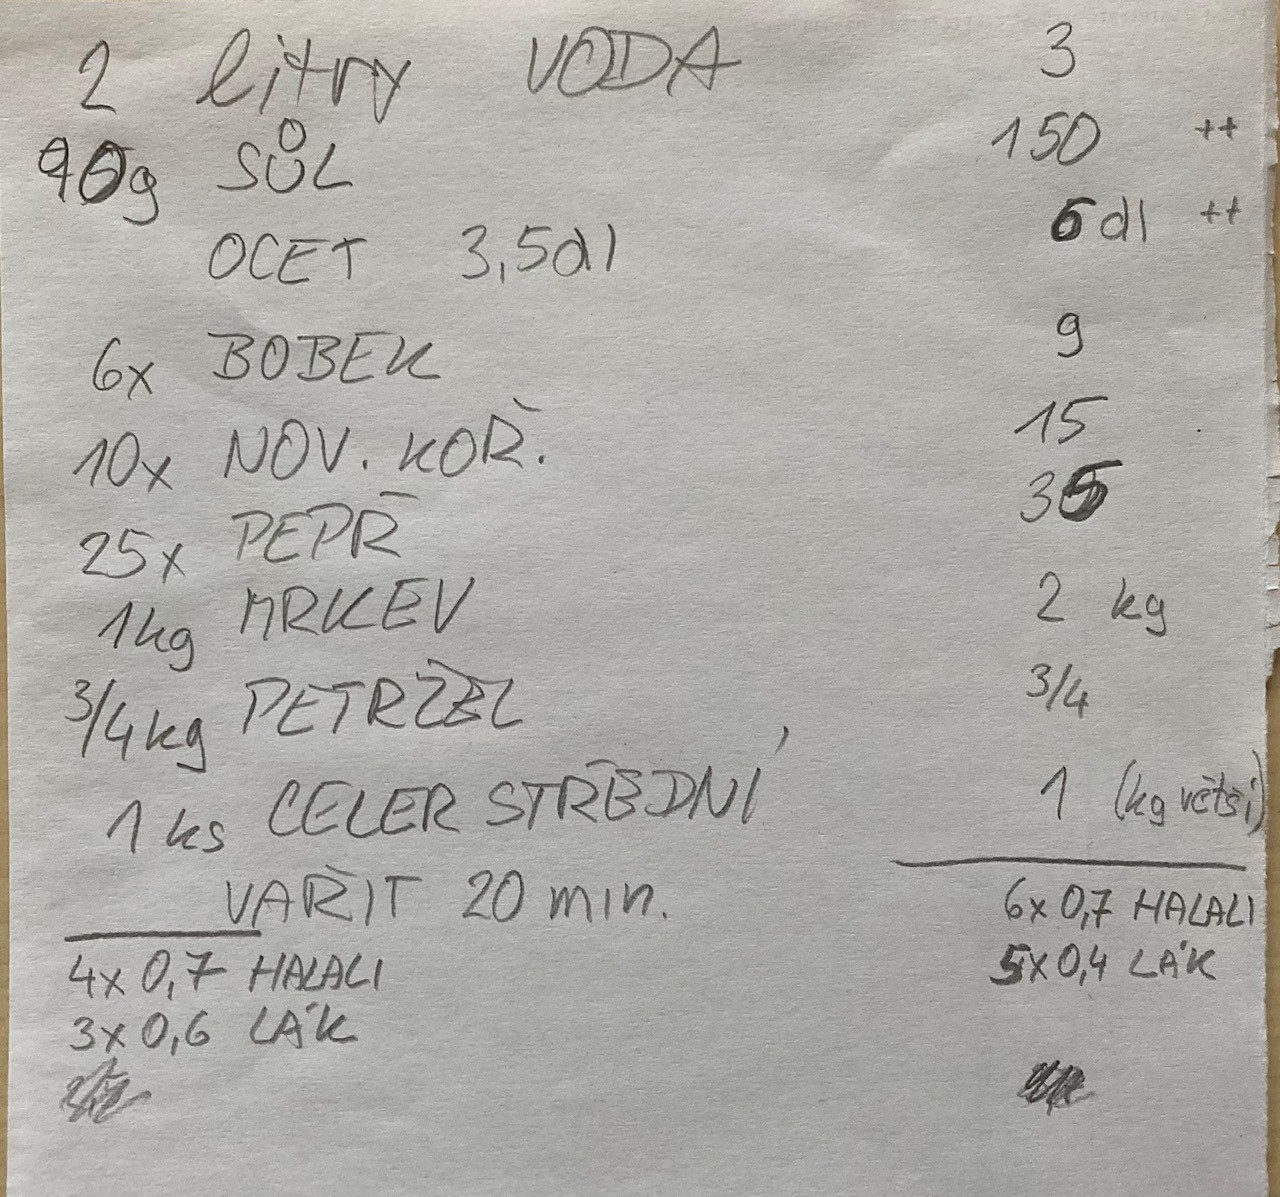 2 litry VODA 3
90g SŮL 150 ++
OCET 3,5dl 6dl ++
6x BOBEK 9
10x NOV. KOŘ. 15
25x PEPŘ 35
1kg MRKEV 2 kg
3/4kg PETRŽEL 3/4
1 ks CELER STŘEDNÍ 1 (kg větší)
VAŘIT 20 min.
4x 0,7 HALALI 6x 0,7 HALALI
3x 0,6 LÁK 5x 0,4 LÁK